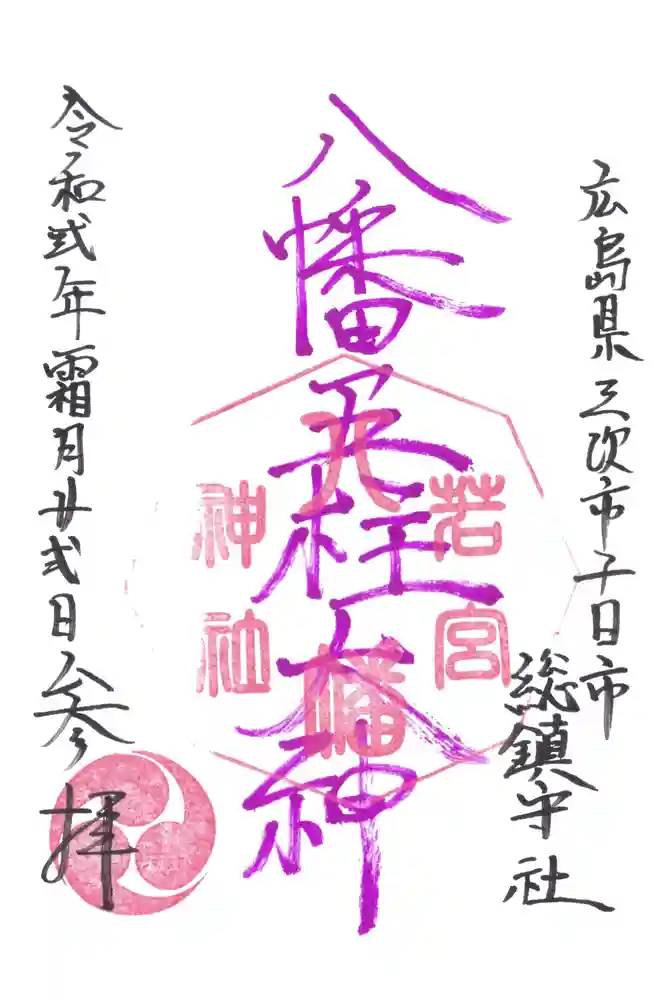 広島県三次市子日市
総鎮守社
八幡五柱大神
若宮
八幡
神社
令和弐年霜月廿弐日参拝